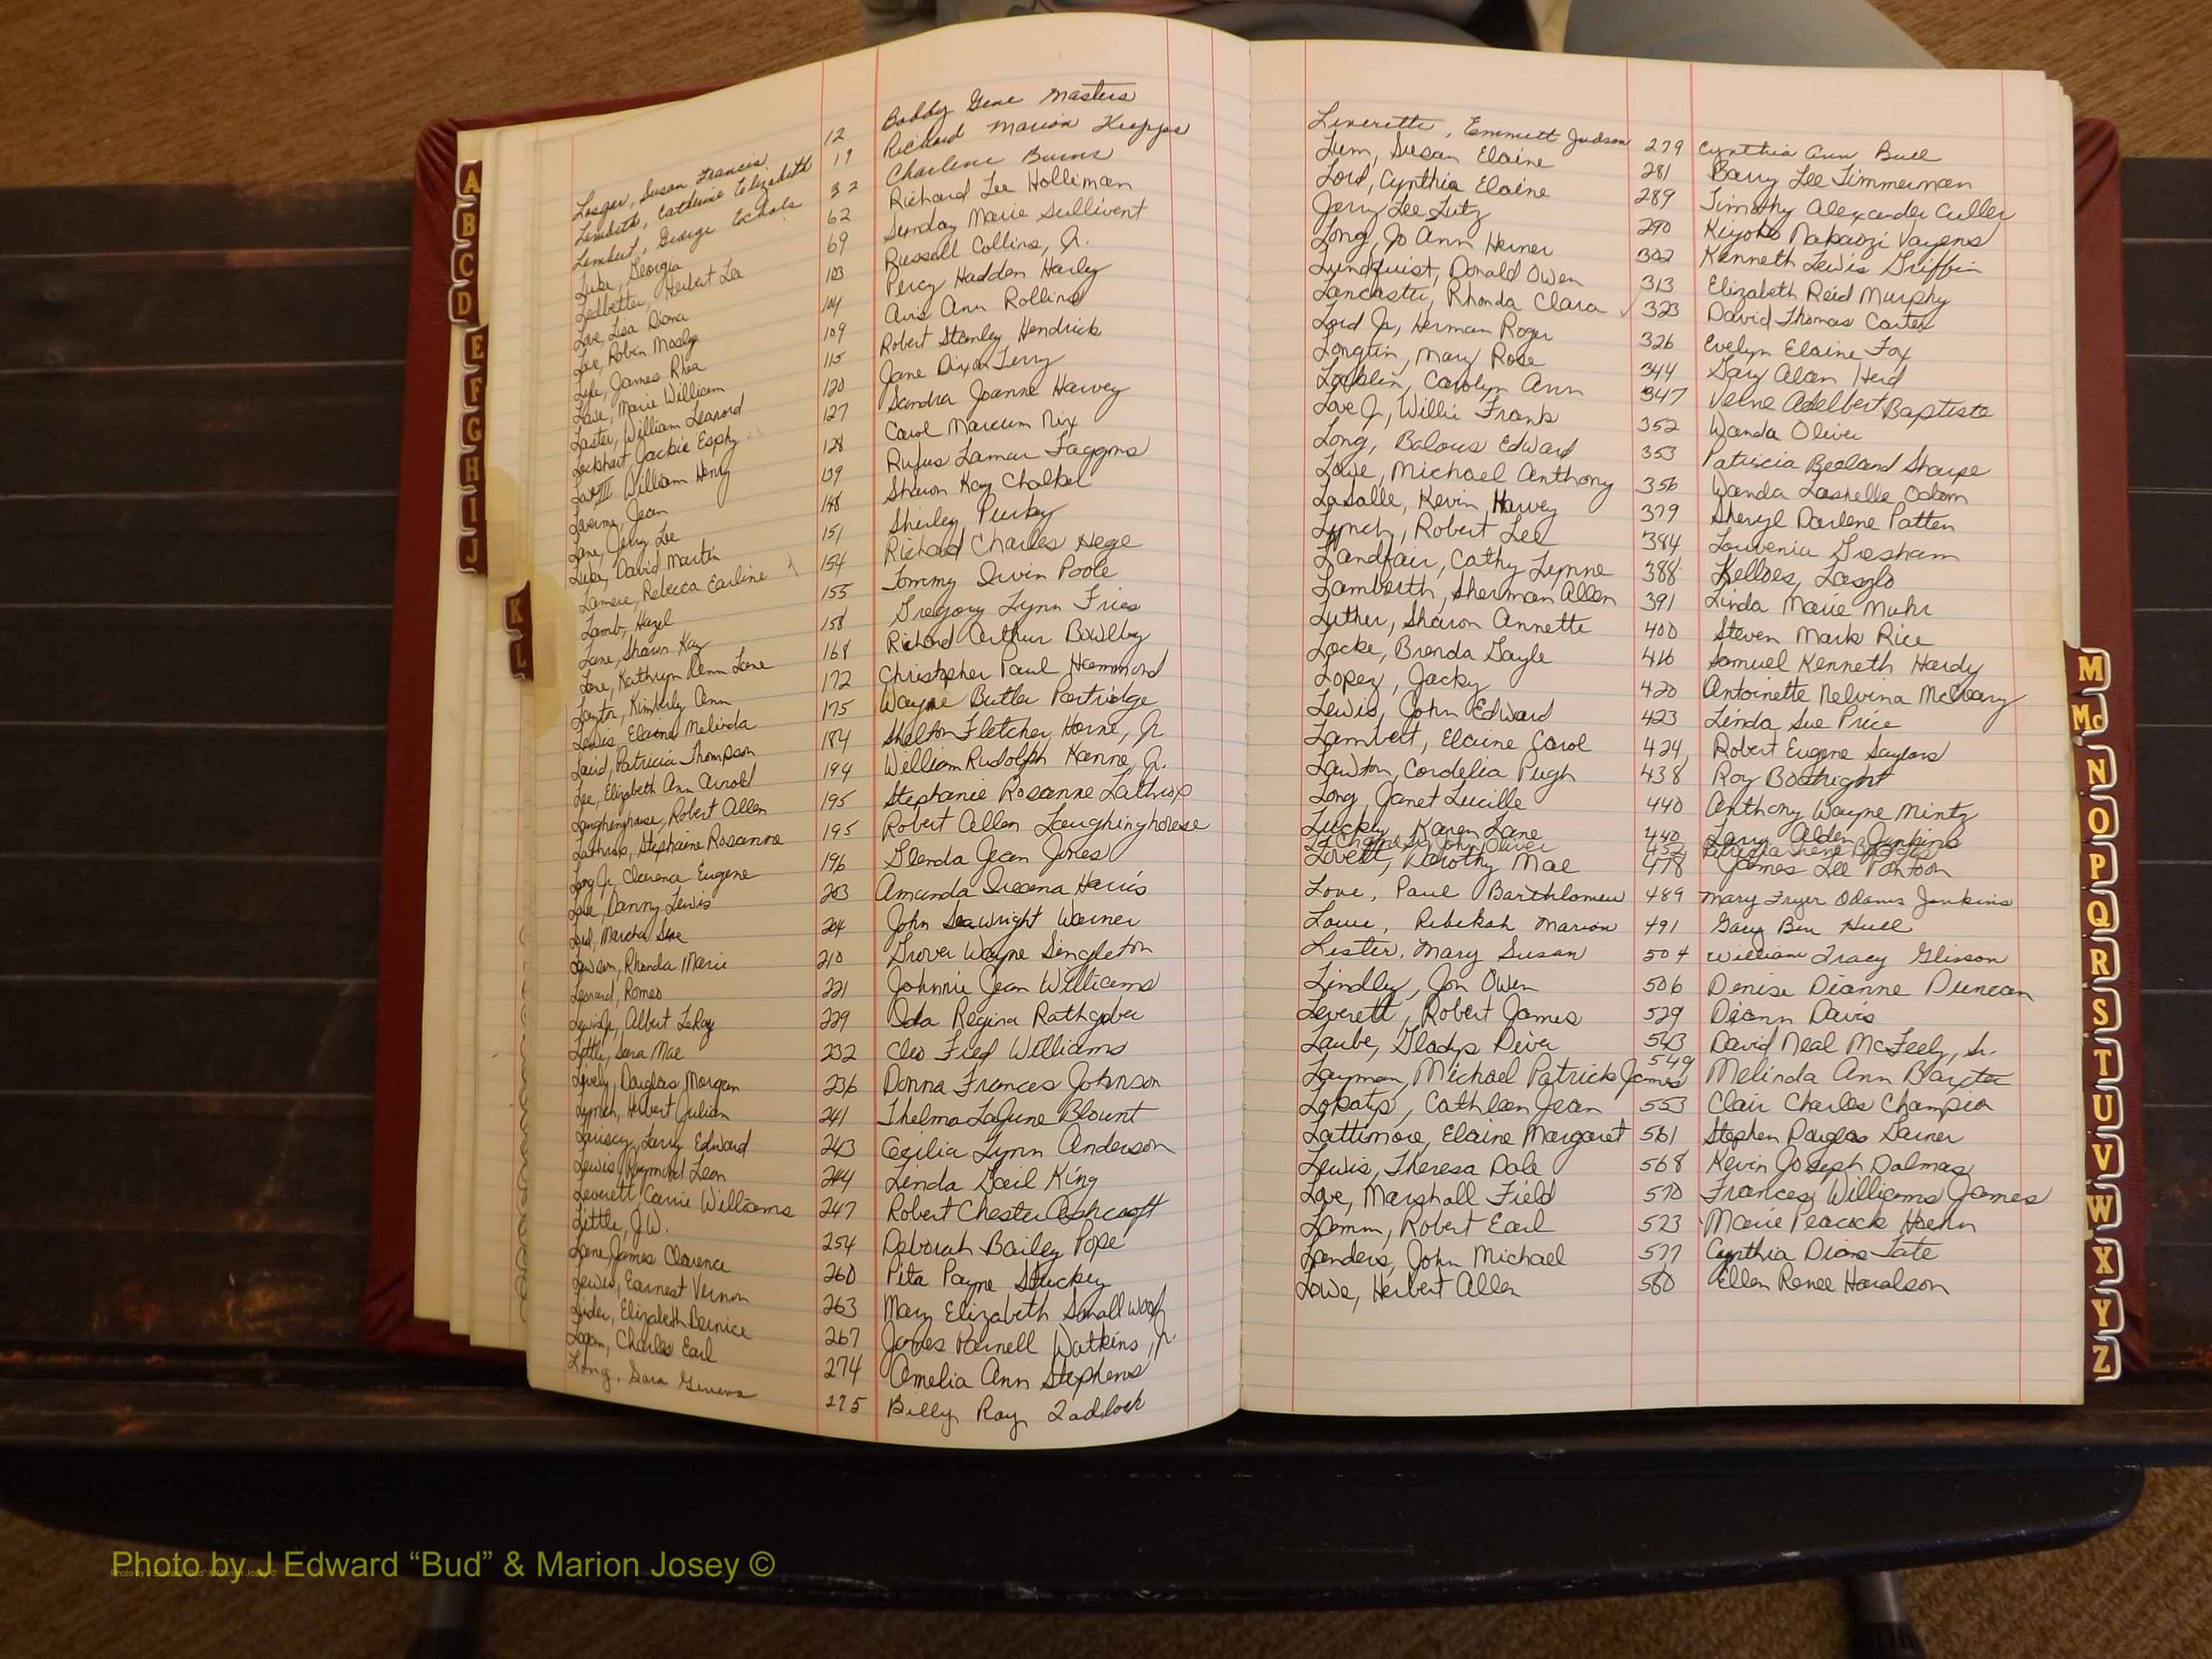 A
B
C
D
E
F
G
H
I
J
K
L
Susan Francis 12 Bobby Gene Masters
Lambeth, Catherine Elizabeth 19 Richard Marion
Lambert, George Echols 32 Charlene Burns
Luke, Georgia 62 Richard Lee Holliman
Ledbetter, Herbert Lee 69 Sunday Marie Sullivent
Love, Lisa Diana 103 Russell Collins, Jr.
Lee, Robin Mosley 104 Percy Hadden Harley
Lyle, James Rhea 109 Avis Ann Rollins
Lowe, Marie William 115 Robert Stanley Hendrick
Laster, William Leanord 120 Jane Dixon Terry
Lockhart Jackie Esphy 127 Sandra Joanne Harvey
Law III William Henry 128 Carol Marcum Nix
Jean 139 Rufus Lamar Faggins
Lane, Jerry Lee 148 Sharon Kay Chalkel
Luke, David Martin 151 Shirley
Lamere, Rebecca Earline 154 Richard Charles Hege
Lamb, Hazel 155 Tommy Irvin Poole
Lane, Sharon Kay 158 Gregory Lynn Fries
Love, Kathryn Denn Lane 168 Richard Arthur Bowlby
Layton, Kimberly Ann 172 Christopher Paul Hammond
Lewis, Elaine Melinda 175 Wayne Butler Partridge
Laird, Patricia Thompson 184 Shelton Fletcher Horne, Jr.
Lee, Elizabeth Ann Arnold 194 William Rudolph Kanne, Jr.
Laughinghouse, Robert Allen 195 Stephanie Rosanne Lathrop
Lathrop, Stephaine Rosanne 195 Robert Allen Laughinghouse
Long Jr, Clarence Eugene 196 Glenda Jean Jones
Love, Danny Lewis 203 Amanda Harris
Lord, Marcha Sue 204 John Seawright Warner
Lawson, Rhonda Marie 210 Grover Wayne Singleton
Leonard, Romeo 221 Johnnie Jean Williams
Lewis Jr, Albert LeRoy 229 Ida Regina Rathgeber
Little, Sara Mae 232 Cleo Fred Williams
Lively, Douglas Morgan 236 Donna Frances Johnson
Lynch, Herbert Julian 241 Thelma LaJune Blount
Lariscy, Larry Edward 243 Cecilia Lynn Anderson
Lewis, Raymond Leon 244 Linda Gail King
Leverett, Carrie Williams 247 Robert Chester Ashcraft
Little, J.W. 254 Deborah Bailey Pope
Lane, James Clarence 260 Rita Payne Stuckey
Lewis, Earnest Vernon 263 Mary Elizabeth Smallwood
Lider, Elizabeth Bernice 267 James Parnell Watkins, Jr
Logan, Charles Earl 274 Amelia Ann Stephens
Long, Sara Geneva 275 Billy Ray Zadlock
Leverette, Emmett Judson 279 Cynthia Ann Bull
Lum, Susan Elaine 281 Barry Lee Timmerman
Lord, Cynthia Elaine 289 Timothy Alexander Culler
Jerry Lee Lutz 290 Kiyoko
Long, Jo Ann Herner 302 Kenneth Lewis Griffin
Lundquist, Donald Owen 313 Elizabeth Reid Murphy
Lancaster, Rhonda Clara 323 David Thomas Carter
Lord Jr, Herman Roger 326 Evelyn Elaine Fox
Longtin, Mary Rose 344 Gary Alan Herd
Loublin, Carolyn Ann 347 Verne Adelbert Baptiste
Love Jr, Willie Frank 352 Wanda Oliver
Long, Balous Edward 353 Patricia Beoland Sharpe
Lowe, Michael Anthony 356 Wanda Lashelle Odom
LaSalle, Kevin Harvey 379 Sheryl Darlene Patten
Lynch, Robert Lee 384 Louvenia Gresham
Landfair, Cathy Lynne 388 Kelloes, Laszlo
Lamberth, Sherman Allen 391 Linda Marie Muhr
Luther, Sharon Annette 400 Steven Mark Rice
Locke, Brenda Gayle 416 Samuel Kenneth Hardy
Lopez, Jacky 420 Antoinette Nelvina McCreary
Lewis, John Edward 423 Linda Sue Price
Lambert, Elaine Carol 424 Robert Eugene Saylors
Lawton, Cordelia Pugh 438 Roy Boatright
Long, Janet Lucille 440 Anthony Wayne Mintz
Lucky, Karen Lane 440 Larry Alden Junkins
John Oliver 452 Patricia Irene
Lovett, Dorothy Mae 478 James Lee Pontoon
Love, Paul Barthlomew 489 Mary Fryer Odams Jenkins
Lowe, Rebekah Marion 491 Gary Ben Hull
Lester, Mary Susan 504 William Tracy Glisson
Lindley, Jon Owen 506 Denise Dianne Duncan
Leverett, Robert James 529 Diann Davis
Laube, Gladys Diver 543 David Neal McFeely, Sr.
Layman, Michael Patrick James 549 Melinda Ann Baxter
Lokatys, Cathleen Jean 553 Clair Charles Champion
Lattimore, Elaine Margaret 561 Stephen Douglas Garner
Lewis, Theresa Dale 568 Kevin Joseph Dalmas
Love, Marshall Field 570 Frances Williams James
Lamm, Robert Earl 523 Marie Peacock Hoehn
Landers, John Michael 577 Cynthia Diane Tate
Lowe, Herbert Allen 580 Ellen Renee Haralson
M
Mc
N
O
P
Q
R
S
T
U
V
W
X
Y
Z
Photo by J Edward “Bud” & Marion Josey ©
Photo by J Edward “Bud” & Marion Josey ©